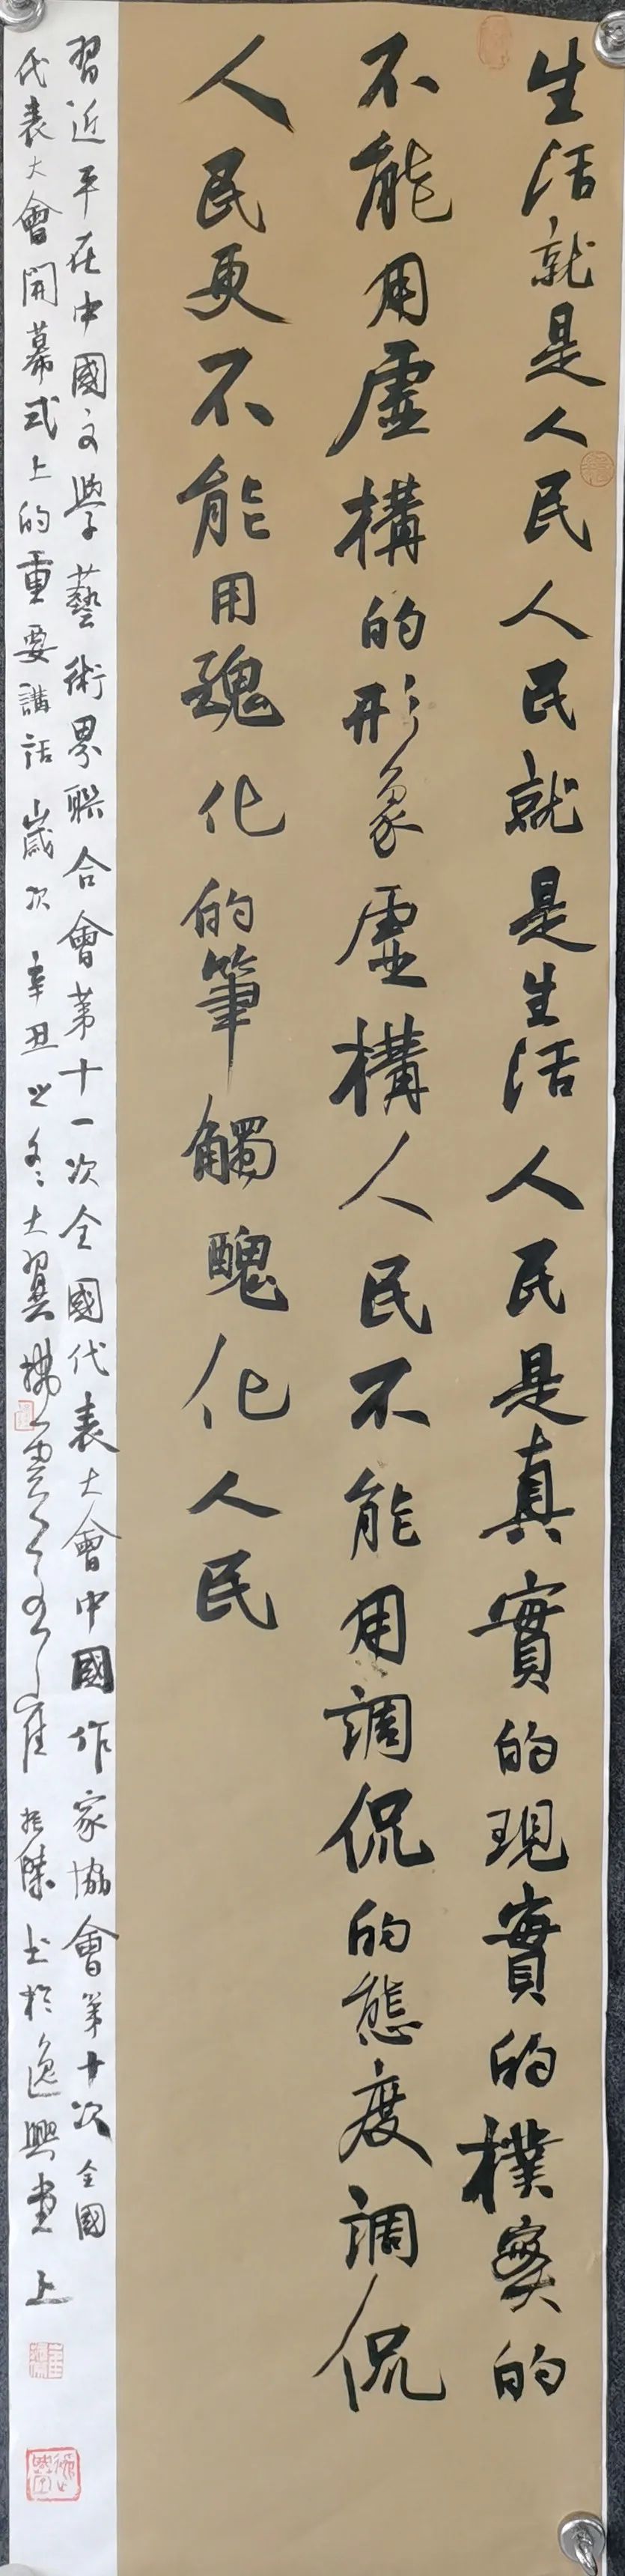 生活就是人民人民就是生活人民是真實的現實的樸實的
不能用虛構的形象虛構人民不能用調侃的態度調侃
人民更不能用醜化的筆觸醜化人民
習近平在中國文學藝術界聯合會第十一次全國代表大會中國作家協會第十次全國
代表大會開幕式上的重要講話歲次辛丑之冬大翼拂雲崔振陳書於逸興堂上